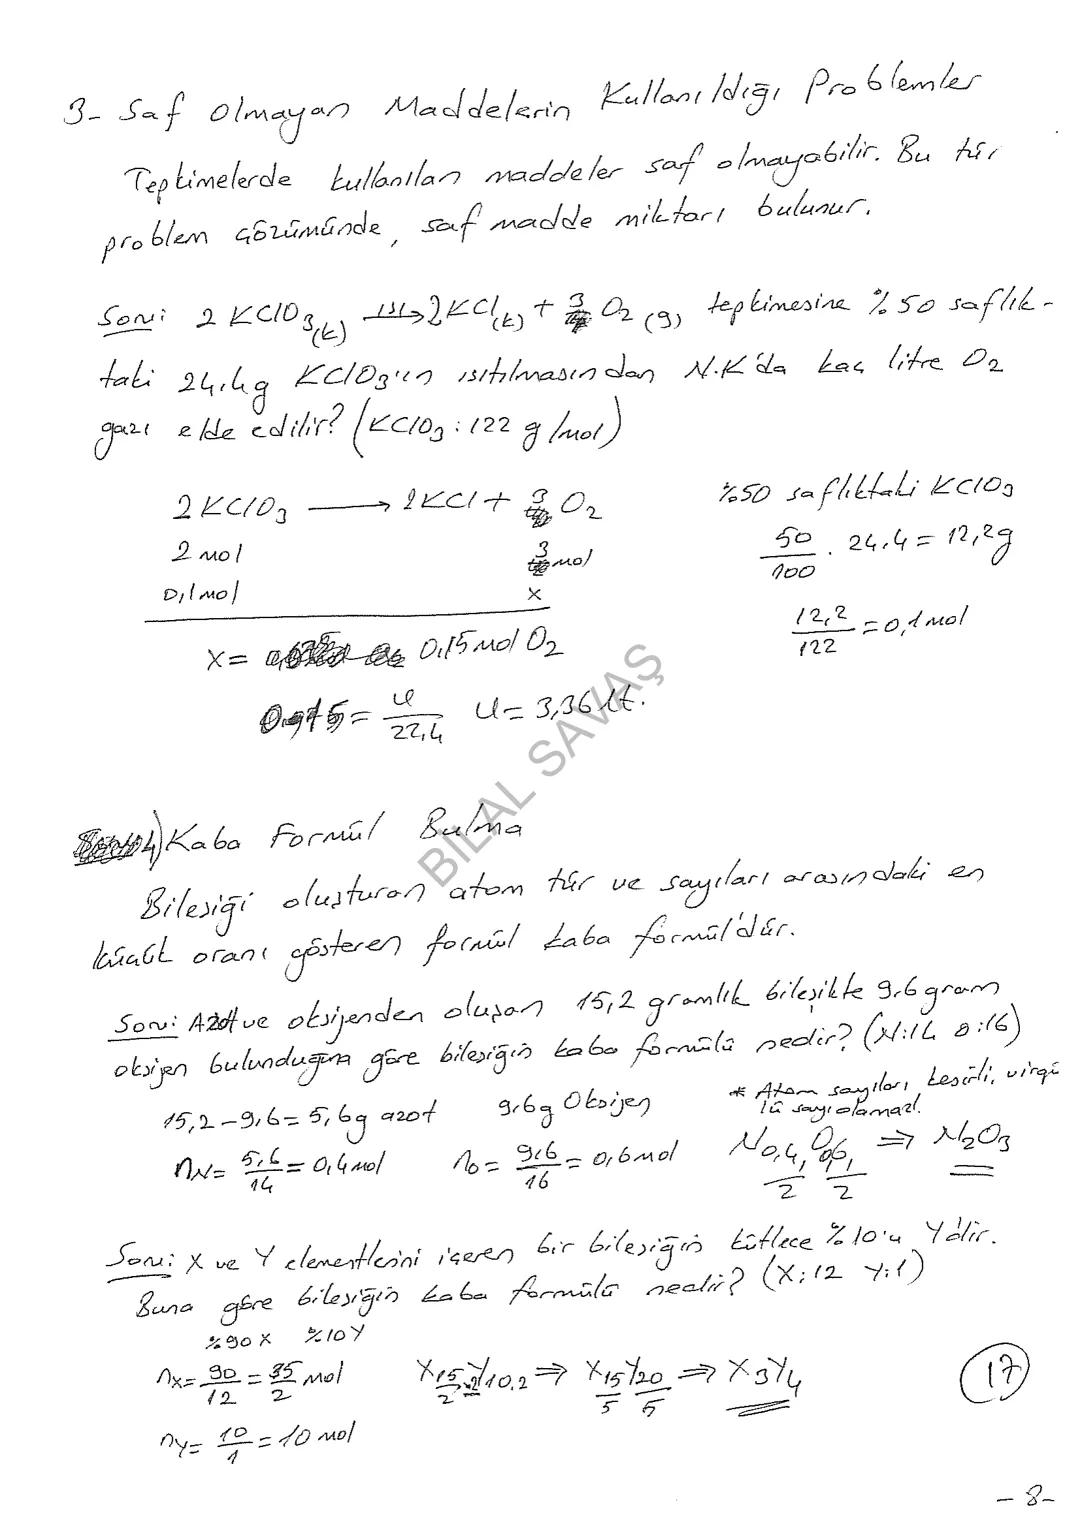 3- Saf olmayan Maddelerin Kullanıldığı Problemler
Tepkimelerde kullanılan maddeler saf olmayabilir. Bu tür
problem çözümünde, saf madde miktarı bulunur.
Soru: 2 KClO3(k) ısı→ 2KCl(k) + 3 O2 (g) tepkimesine %50 saflık-
taki 24,4g KClO3'ın ısıtılmasından N.K'da kaç litre O2
gazı elde edilir? (KClO3 : 122 g/mol)
2KClO3 → 2KCl + 3 O2
2 mol 3 mol
0,1mol x
x= 0,15 mol O2
= u/22,4 u= 3,36 lt.
%50 saflıktaki KClO3
50/100 . 24,4 = 12,2g
12,2/122 = 0,1 mol
BİLAL SAVAŞ
4) Kaba Formül Bulma
Bileşiği oluşturan atom tür ve sayıları arasındaki en
küçük oranı gösteren formül kaba formül'dür.
Soru: Azot ve oksijenden oluşan 15,2 gramlık bileşikte 9,6 gram
oksijen bulunduğuna göre bileşiğin kaba formülü nedir? (N:14 O:16)
15,2-9,6= 5,6g azot 9,6g Oksijen
nN= 5,6/14 = 0,4mol nO= 9,6/16 = 0,6mol
* Atom sayıları, kesirli, virgü
lü sayı olamaz!
N0,4/2 O0,6/2 ⇒ N2O3
Soru: X ve Y elementlerini içeren bir bileşiğin kütlece %10'u Y'dir.
Buna göre bileşiğin kaba formülü nedir? (X:12 Y:1)
%90X %10Y
nX= 90/12 = 35/2 mol
nY= 10/1 = 10 mol
X15/2.2 Y10.2 ⇒ X15/5 Y20/5 ⇒ X3Y4
17
-8-